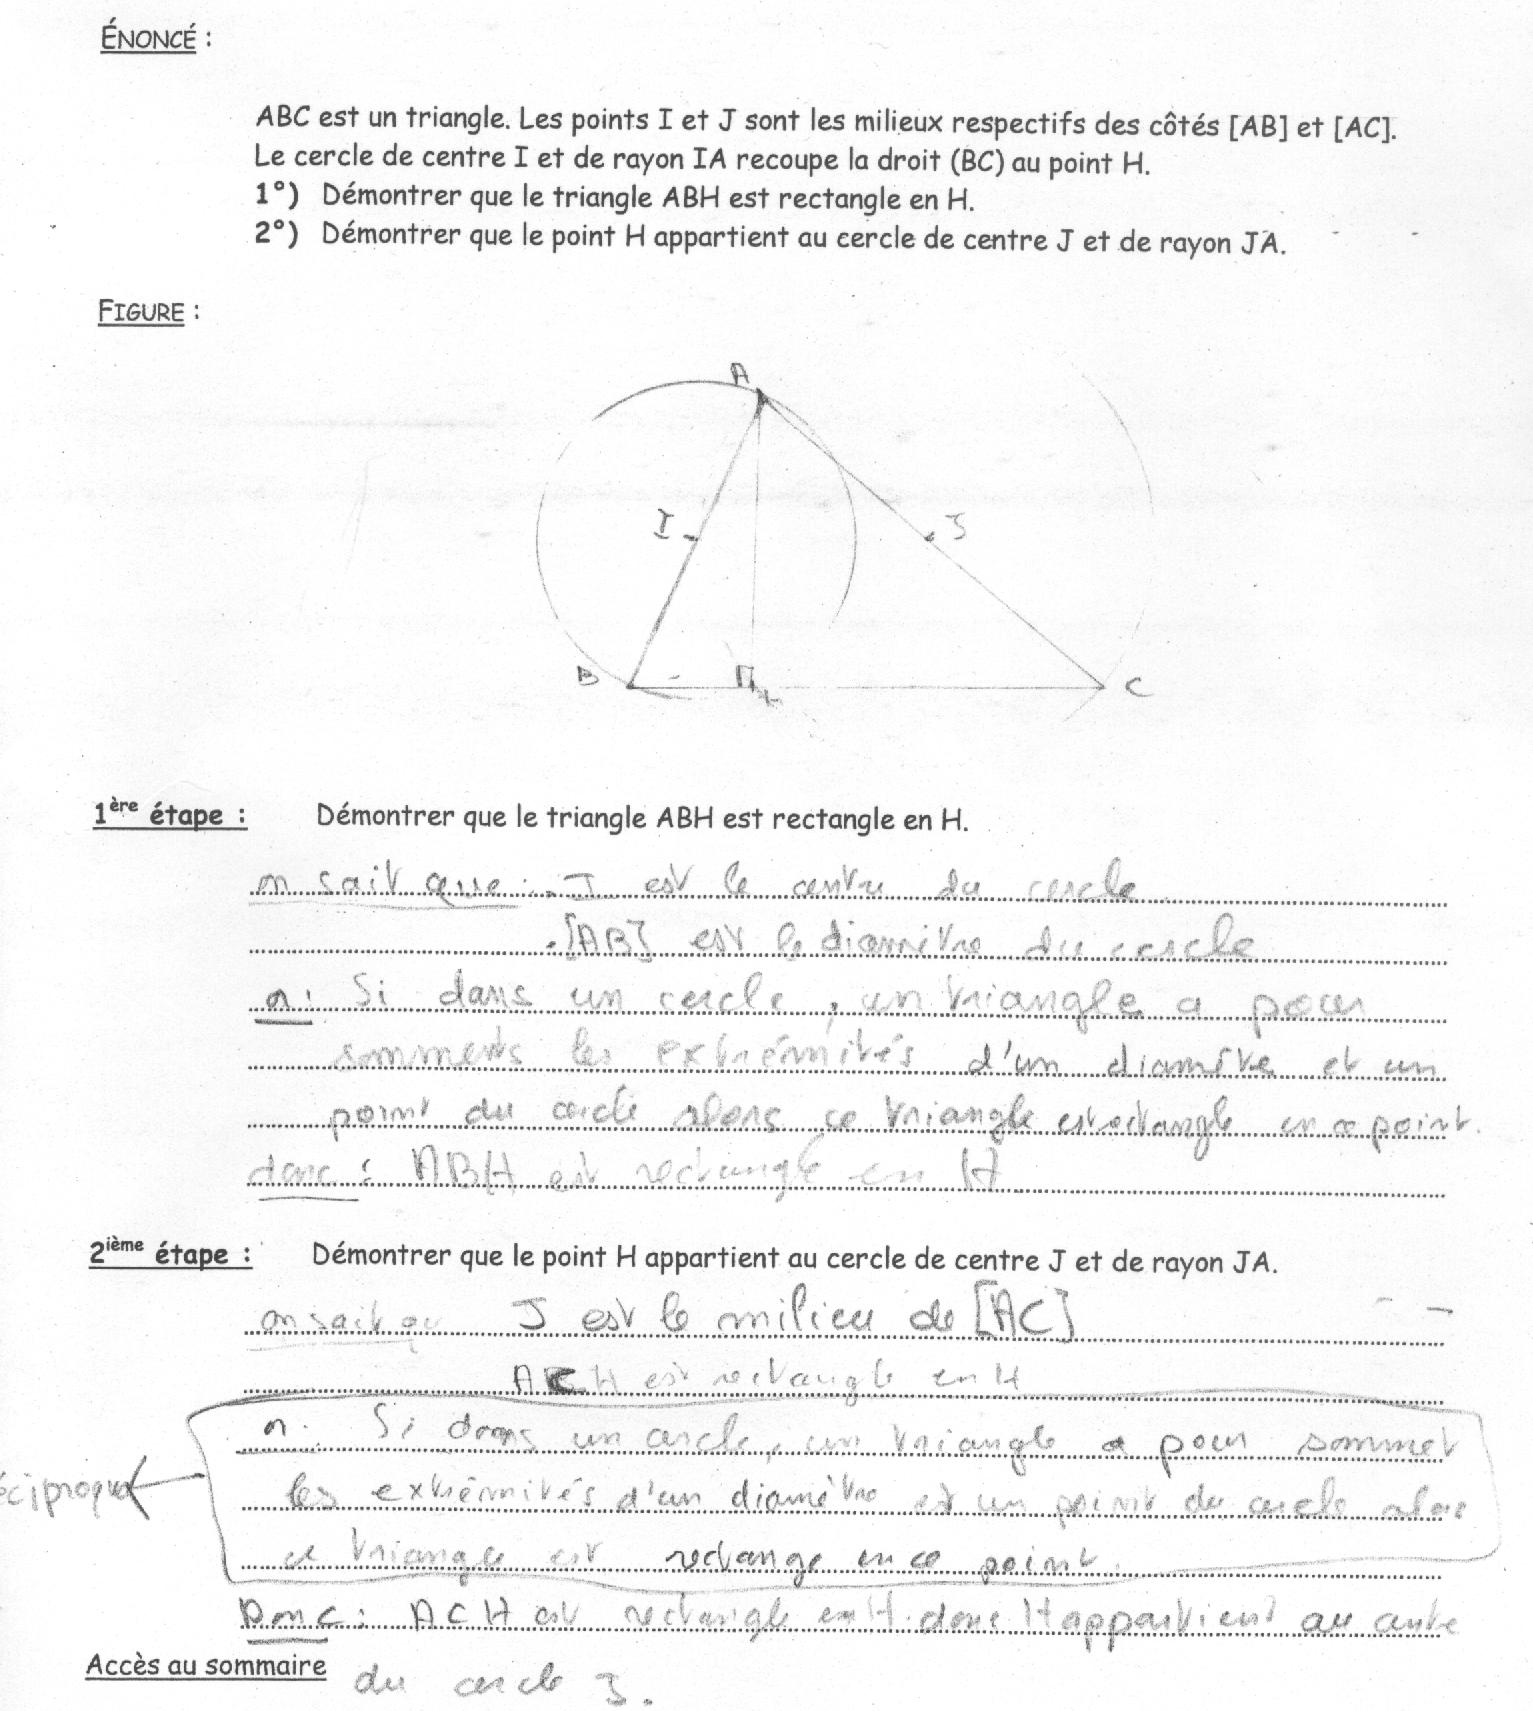 ÉNONCÉ :
ABC est un triangle. Les points I et J sont les milieux respectifs des côtés [AB] et [AC].
Le cercle de centre I et de rayon IA recoupe la droit (BC) au point H.
1°) Démontrer que le triangle ABH est rectangle en H.
2°) Démontrer que le point H appartient au cercle de centre J et de rayon JA.
FIGURE :
A
I J
B C
1ère étape : Démontrer que le triangle ABH est rectangle en H.
on sait que : . I est le centre du cercle
. [AB] est le diamètre du cercle
n : Si dans un cercle, un triangle a pour
sommets les extrémités d'un diamètre et un
point du cercle alors ce triangle est rectangle en ce point.
donc : ABH est rectangle en H
2ième étape : Démontrer que le point H appartient au cercle de centre J et de rayon JA.
on sait que J est le milieu de [AC]
ACH est rectangle en H
n : Si dans un cercle, un triangle a pour sommet
les extrémités d'un diamètre et un point du cercle alors
ce triangle est rectange en ce point.
Donc : ACH est rectangle en H. donc H appartient au
Accès au sommaire du cercle J.